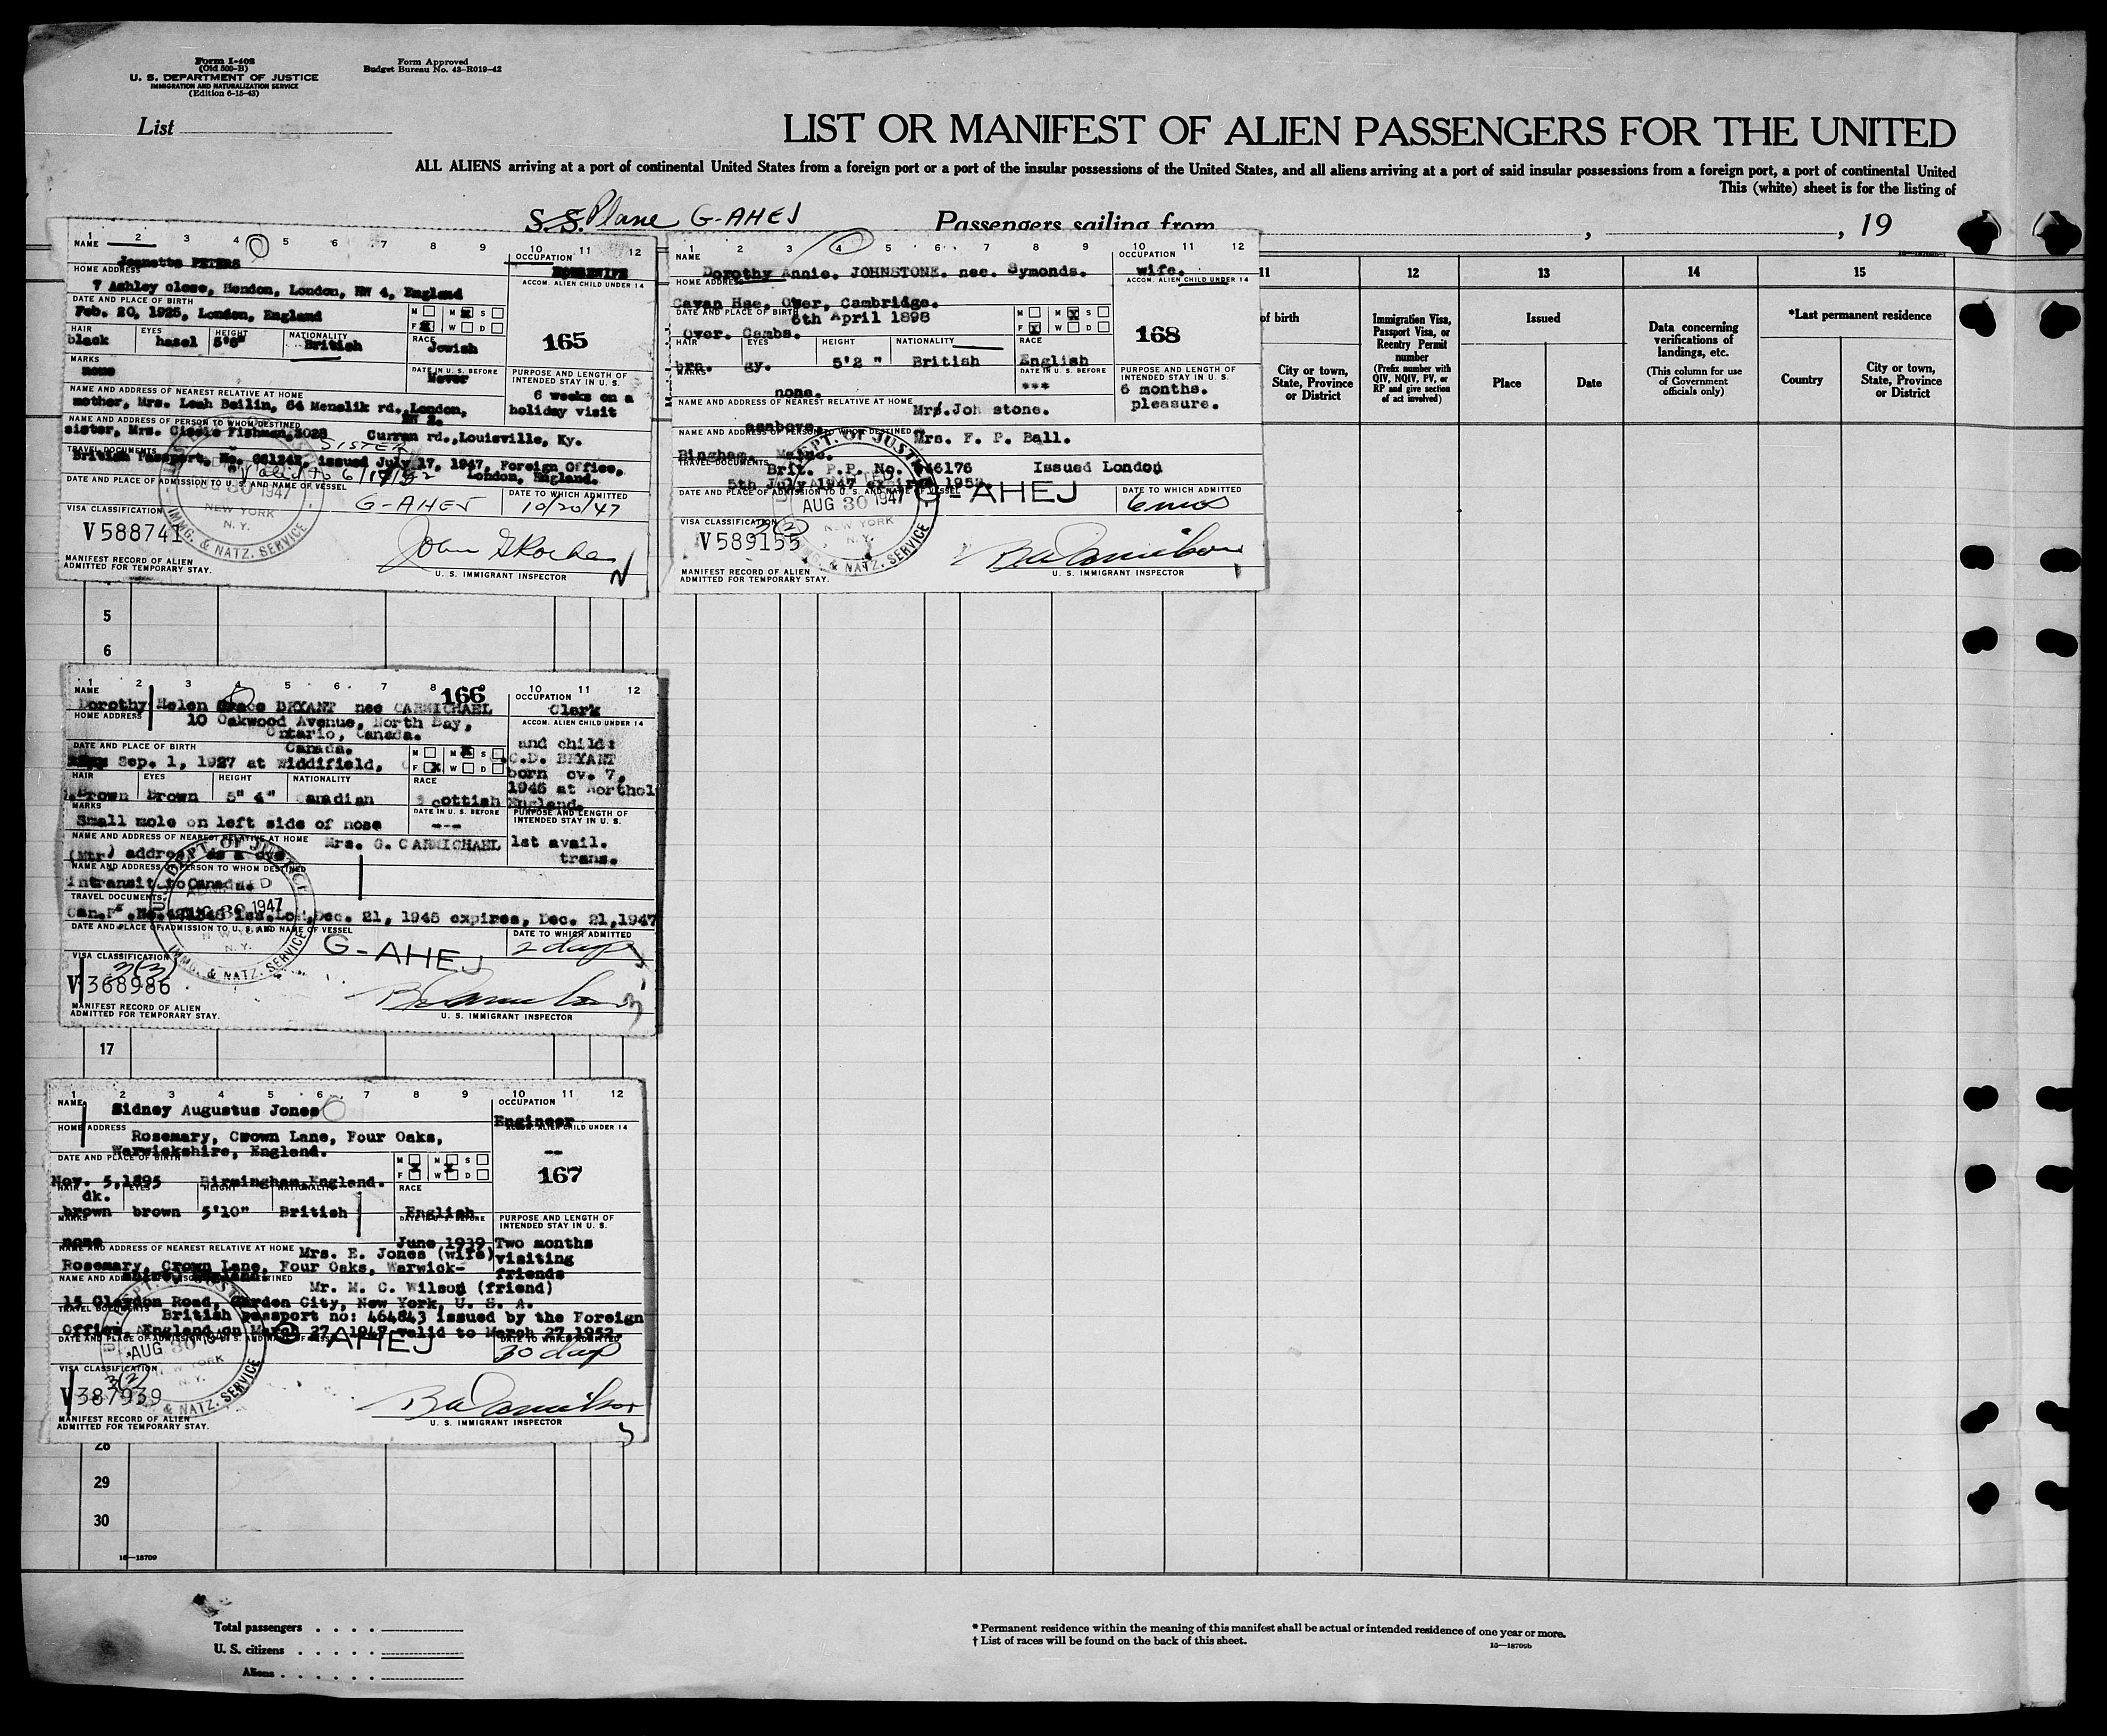 Form I-402
(Old 500-B)
U. S. DEPARTMENT OF JUSTICE
IMMIGRATION AND NATURALIZATION SERVICE
(Edition 6-15-43)
Form Approved
Budget Bureau No. 43-R019-42
List
LIST OR MANIFEST OF ALIEN PASSENGERS FOR THE UNITED
ALL ALIENS arriving at a port of continental United States from a foreign port or a port of the insular possessions of the United States, and all aliens arriving at a port of said insular possessions from a foreign port, a port of continental United
This (white) sheet is for the listing of
S. S. Plane G-AHEJ
Passengers sailing from , , 19
1 2 3 4 5 6 7 8 9 10 11 12
NAME
Jeanette PETERS
OCCUPATION
HOUSEWIFE
HOME ADDRESS
ACCOM. ALIEN CHILD UNDER 14
7 Ashley close, Hendon, London, NW 4, England
DATE AND PLACE OF BIRTH
M M S
Feb. 20, 1925, London, England
F W D
165
HAIR EYES HEIGHT NATIONALITY RACE
black hazel 5'6" British Jewish
MARKS
none
DATE IN U. S. BEFORE
Never
PURPOSE AND LENGTH OF
INTENDED STAY IN U. S.
6 weeks on a
holiday visit
NAME AND ADDRESS OF NEAREST RELATIVE AT HOME
mother, Mrs. Leah Beilin, 64 Menelik rd., London,
NW 2.
NAME AND ADDRESS OF PERSON TO WHOM DESTINED
sister, Mrs. Cissie Fishman, 3028 Curran rd., Louisville, Ky.
SISTER
TRAVEL DOCUMENTS
British Passport, No. issued July 17, 1947, Foreign Office,
London, England.
Valid to
DATE AND PLACE OF ADMISSION TO U. S. AND NAME OF VESSEL
AUG 30 1947
NEW YORK
N. Y.
IMMG. & NATZ. SERVICE
G-AHEJ
DATE TO WHICH ADMITTED
10/20/47
VISA CLASSIFICATION
V588741
MANIFEST RECORD OF ALIEN
ADMITTED FOR TEMPORARY STAY.
U. S. IMMIGRANT INSPECTOR
1 2 3 4 5 6 7 8 9 10 11 12
NAME
Dorothy Annie. JOHNSTONE. nee. Symonds.
OCCUPATION
wife.
HOME ADDRESS
ACCOM. ALIEN CHILD UNDER 14
Cavan Hse, Over, Cambridge.
DATE AND PLACE OF BIRTH
6th April 1898
Over. Cambs.
M M S
F W D
168
HAIR EYES HEIGHT NATIONALITY RACE
brn. gy. 5'2 " British English
MARKS
none.
DATE IN U. S. BEFORE
***
PURPOSE AND LENGTH OF
INTENDED STAY IN U. S.
6 months.
pleasure.
NAME AND ADDRESS OF NEAREST RELATIVE AT HOME
Mrs. Joh stone.
asabove.
NAME AND ADDRESS OF PERSON TO WHOM DESTINED
Mrs. F. P. Ball.
Bingham. Maine.
TRAVEL DOCUMENTS
Brit. P.P. No. Issued London
5th July 1947 expires 1952.
DATE AND PLACE OF ADMISSION TO U. S. AND NAME OF VESSEL
DEPT. OF JUSTICE
AUG 30 1947
NEW YORK
N. Y.
IMMG. & NATZ. SERVICE
G-AHEJ
DATE TO WHICH ADMITTED
6 mos
VISA CLASSIFICATION
3(2)
V589155
MANIFEST RECORD OF ALIEN
ADMITTED FOR TEMPORARY STAY.
U. S. IMMIGRANT INSPECTOR
11 12 13 14 15
of birth
City or town,
State, Province
or District
Immigration Visa,
Passport Visa, or
Reentry Permit
number
(Prefix number with
QIV, NQIV, PV, or
RP and give section
of act involved)
Issued
Place Date
Data concerning
verifications of
landings, etc.
(This column for use
of Government
officials only)
*Last permanent residence
Country
City or town,
State, Province
or District
5
6
1 2 3 4 5 6 7 8 9 10 11 12
166
NAME
Dorothy Helen Grace BRYANT nee CARMICHAEL
OCCUPATION
Clerk
HOME ADDRESS
10 Oakwood Avenue, North Bay,
Ontario, Canada.
ACCOM. ALIEN CHILD UNDER 14
and child:
C.D. BRYANT
born ov. 7,
1946 at Northol
England.
DATE AND PLACE OF BIRTH
Canada.
Sep. 1, 1927 at Widdifield,
M M S
F W D
HAIR EYES HEIGHT NATIONALITY RACE
Brown Brown 5" 4" Canadian Scottish
MARKS
Small mole on left side of nose
DATE IN U. S. BEFORE
---
PURPOSE AND LENGTH OF
INTENDED STAY IN U. S.
1st avail.
trans.
NAME AND ADDRESS OF NEAREST RELATIVE AT HOME
Mrs. G. CARMICHAEL
(Mtr) address as a ove
NAME AND ADDRESS OF PERSON TO WHOM DESTINED
intransit to Canada.
TRAVEL DOCUMENTS
Can.P .No. iss.Lon,Dec. 21, 1945 expires, Dec. 21,1947
DATE AND PLACE OF ADMISSION TO U. S. AND NAME OF VESSEL
DEPT. OF JUSTICE
ADMITTED
AUG 30 1947
NEW YORK
N. Y.
IMMG. & NATZ. SERVICE
G-AHEJ
DATE TO WHICH ADMITTED
2 days
VISA CLASSIFICATION
3(3)
V368986
MANIFEST RECORD OF ALIEN
ADMITTED FOR TEMPORARY STAY.
U. S. IMMIGRANT INSPECTOR
17
1 2 3 4 5 6 7 8 9 10 11 12
NAME
Sidney Augustus Jones
OCCUPATION
Engineer
HOME ADDRESS
ACCOM. ALIEN CHILD UNDER 14
Rosemary, Crown Lane, Four Oaks,
Warwickshire, England.
--
167
DATE AND PLACE OF BIRTH
M M S
F W D
Nov. 5,1895 Birmingham England.
HAIR EYES HEIGHT NATIONALITY RACE
dk.
brown brown 5'10" British English
MARKS
none
DATE IN U. S. BEFORE
June 1939
PURPOSE AND LENGTH OF
INTENDED STAY IN U. S.
Two months
visiting
friends
NAME AND ADDRESS OF NEAREST RELATIVE AT HOME
Mrs. E. Jones (wife)
Rosemary, Crown Lane, Four Oaks, Warwick-
shire, England.
NAME AND ADDRESS OF PERSON TO WHOM DESTINED
Mr. M. C. Wilson (friend)
15 Claydon Road, Garden City, New York, U. S. A.
TRAVEL DOCUMENTS
British passport no: 464843 issued by the Foreign
Office, England on March 27, 1947 valid to March 27,1952.
DATE AND PLACE OF ADMISSION TO U. S. AND NAME OF VESSEL
AUG 30 1947
NEW YORK
N. Y.
IMMG. & NATZ. SERVICE
G-AHEJ
DATE TO WHICH ADMITTED
30 days
VISA CLASSIFICATION
3(2)
V387939
MANIFEST RECORD OF ALIEN
ADMITTED FOR TEMPORARY STAY.
U. S. IMMIGRANT INSPECTOR
28
29
30
16—18709
Total passengers . . . .
U. S. citizens . . . . .
Aliens . . . . . .
* Permanent residence within the meaning of this manifest shall be actual or intended residence of one year or more.
† List of races will be found on the back of this sheet.
16—18709b